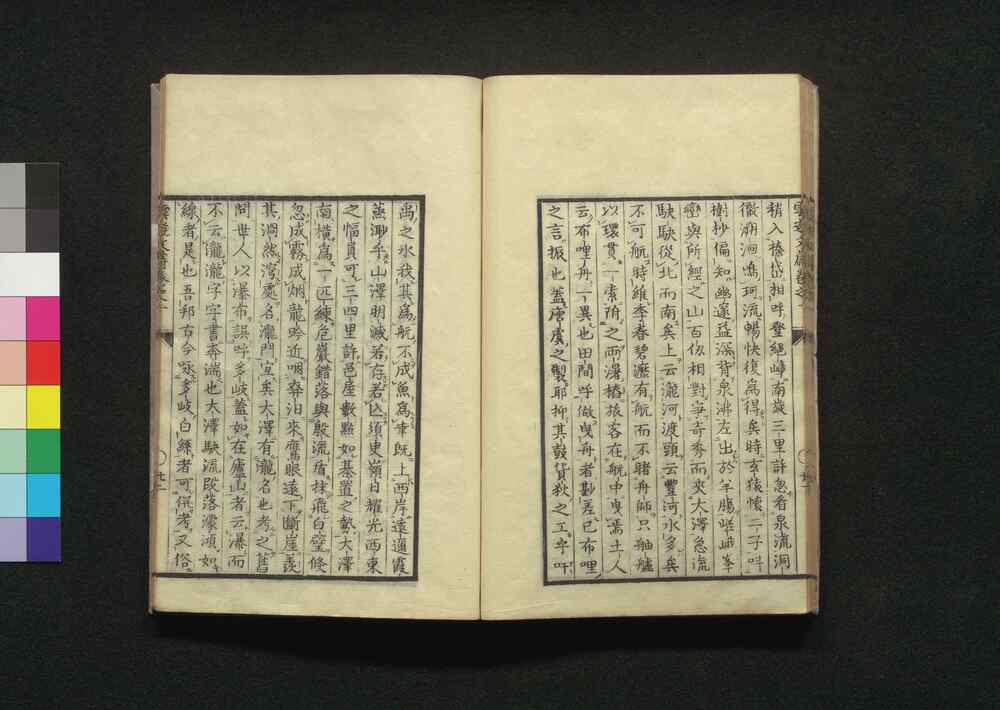 稍入捺岱相呼登絕巓南歲三里許忽看泉流洞
儼湖洄鳴珂流暢快復爲得矣時玄猿懷二子叫
樹抄偏知幽邃益深背泉沸左出於羊膓嵯峨峯
巒與所經之山百仭相對爭奇秀而夾大澤急流
駃駃從北而南矣上云瀧河渡頭云豐河水多矣
不可航時維季春碧瀌有航而不睹舟師只舳艫
以環貫一索陏之兩邊樁旅客在航中曳焉土人
云布哩舟一異也田間呼做曳舟者尠差已布哩
之言振也蓋唐虞之製耶抑其鼓貨狄之工乎吁
禹之水我其爲航不成魚爲幸既上西岸遠邇霞
蒸渺乎山澤明滅若存若亾須臾嶺日耀光西東
之幅員可三四里許邑產數點如碁置之勢大澤
南橫爲一匹練危巖錯落與殷流盾抹飛白璧倏
忽成霧成烟龍吟近咽奔汨來鷹眼遠下斷崖羨
其淵然灣處名瀧門宜矣大澤有瀧名也考之舊
問世人以瀑布誤呼多岐蓋如在廬山者云瀑而
不云瀧瀧字字書奔湍也大澤駃流段落濛澒如
練者是也吾邦古今咏多岐白絲者可偎考又俗